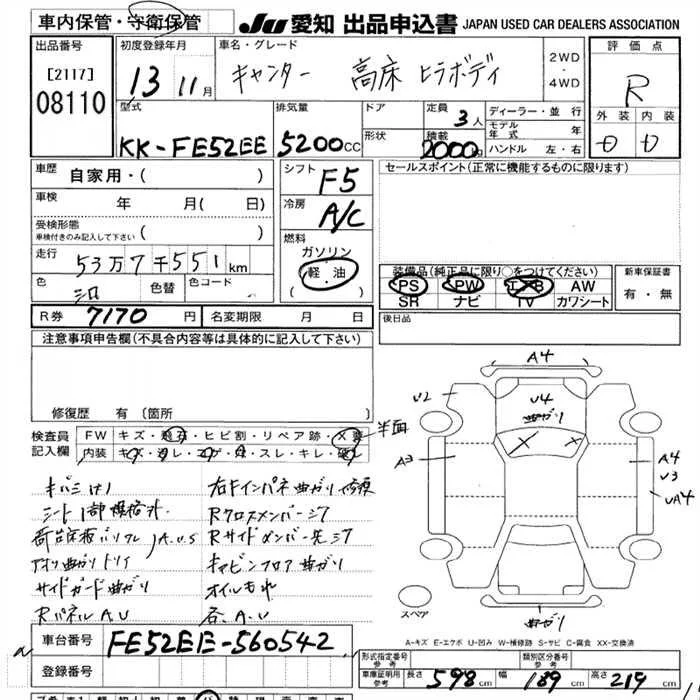 車内保管・守衛保管
JU 愛知 出品申込書 JAPAN USED CAR DEALERS ASSOCIATION
出品番号
[2117]
08110
初度登録年月
13 11月
車名・グレード
キャンター 高床 ヒラボディ
2WD
・
4WD
評価点
R
型式
KK-FE52EE
排気量
5200cc
ドア
形状
定員
3人
積載
2000kg
ディーラー・並行
モデル年式 年
ハンドル 左・右
外装 内装
D D
車歴
自家用・( )
車検
年 月( 日)
受検形態
車検付きのみ記入して下さい ( )
走行
53万7千551km
色
シロ
色替
色コード
シフト
F5
冷房
A/C
燃料
ガソリン
軽・油
( )
セールスポイント(正常に機能するものに限ります)
装備品(純正品に限り○をつけてください)
PS PW エアB AW
SR ナビ TV カワシート
新車保証書
有・無
R券 7170円
名変期限 月 日
後日品
注意事項申告欄(不具合内容等は具体的に記入して下さい)
修復歴 有 (箇所
検査員
記入欄
FW キズ・飛石・ヒビ割・リペア跡・X要 半面
内装 キズ・汚レ・コゲ・穴・スレ・キレ・
シート1部
アオリ曲がり
サイドガード曲がり
RパネルA.U
右Fインパネ曲がり修復
Rクロスメンバーサビ
Rサイドメンバー先サビ
キャビンフロア曲がり
オイルもれ
各A.U
A4
U2
U4
曲がり
A3
A4
U3
UA4
X X
スペア
曲がり
A-キズ E-エクボ U-凹み W-補修跡 S-サビ C-腐食 XX-交換済
車台番号 FE52EE-560542
登録番号
形式指定番号
参考
類別区分番号
参考
車庫証明用
参考
長さ 598cm 幅 189cm 高さ 219cm